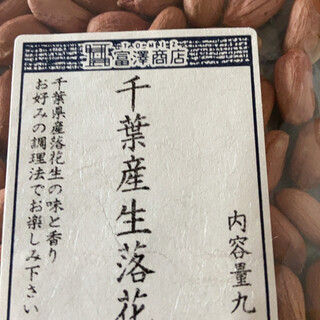 TOMIZ
富澤商店
内容量九
千葉産生落花
千葉県産落花生の味と香り
お好みの調理法でお楽しみ下さい